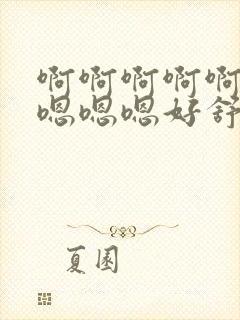 啊啊啊啊啊
嗯嗯嗯好舒
夏園